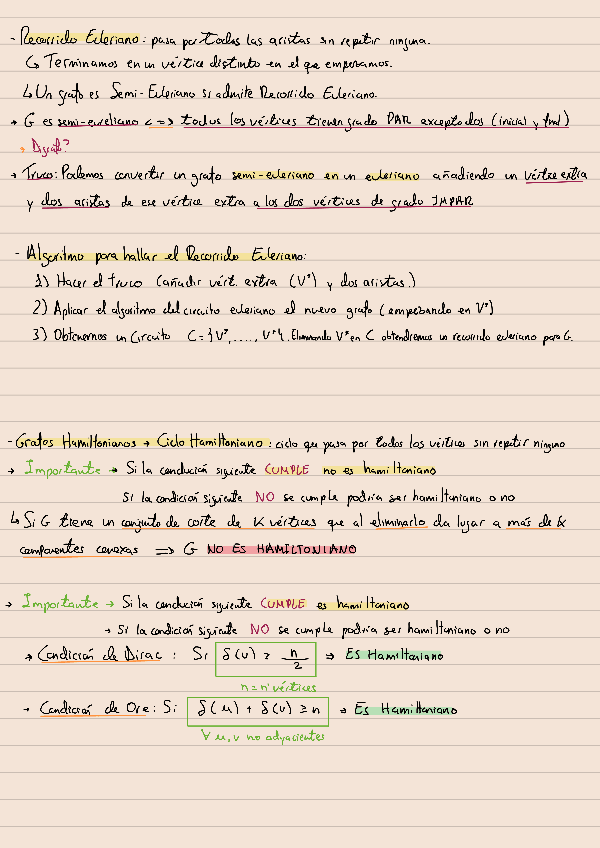 - Recorrido Euleriano: pasa por todas las aristas sin repetir ninguna.
↳ Terminamos en un vértice distinto en el que empezamos.
↳ Un grafo es Semi-Euleriano si admite Recorrido Euleriano.
→ G es semi-eureliano <=> todos los vértices tienen grado PAR excepto dos (inicial y final)
→ Dgrafo?
→ Truco: Podemos convertir un grafo semi-euleriano en un euleriano añadiendo un vértice extra
y dos aristas de ese vértice extra a los dos vértices de grado IMPAR
- Algoritmo para hallar el Recorrido Euleriano:
1) Hacer el truco (añadir vért. extra (V*) y dos aristas.)
2) Aplicar el algoritmo del circuito euleriano el nuevo grafo (empezando en V*)
3) Obtenemos un Circuito C={V*,...., V*}. Eliminando V* en C obtendremos un recorrido euleriano para G.
- Grafos Hamiltonianos → Ciclo Hamiltoniano: ciclo que pasa por todos los vértices sin repetir ninguno
→ Importante → Si la condición siguiente CUMPLE no es hamiltoniano
Si la condición siguiente NO se cumple podría ser hamiltoniano o no
↳ Si G tiene un conjunto de corte de K vértices que al eliminarlo da lugar a más de K
componentes conexas => G NO ES HAMILTONIANO
→ Importante → Si la condición siguiente CUMPLE es hamiltoniano
→ Si la condición siguiente NO se cumple podría ser hamiltoniano o no
→ Condición de Dirac : Si δ(v) ≥ n/2 ⇒ Es Hamiltoniano
n = nº vértices
→ Condición de Ore: Si δ(u) + δ(v) ≥ n ⇒ Es Hamiltoniano
∀ u, v no adyacientes